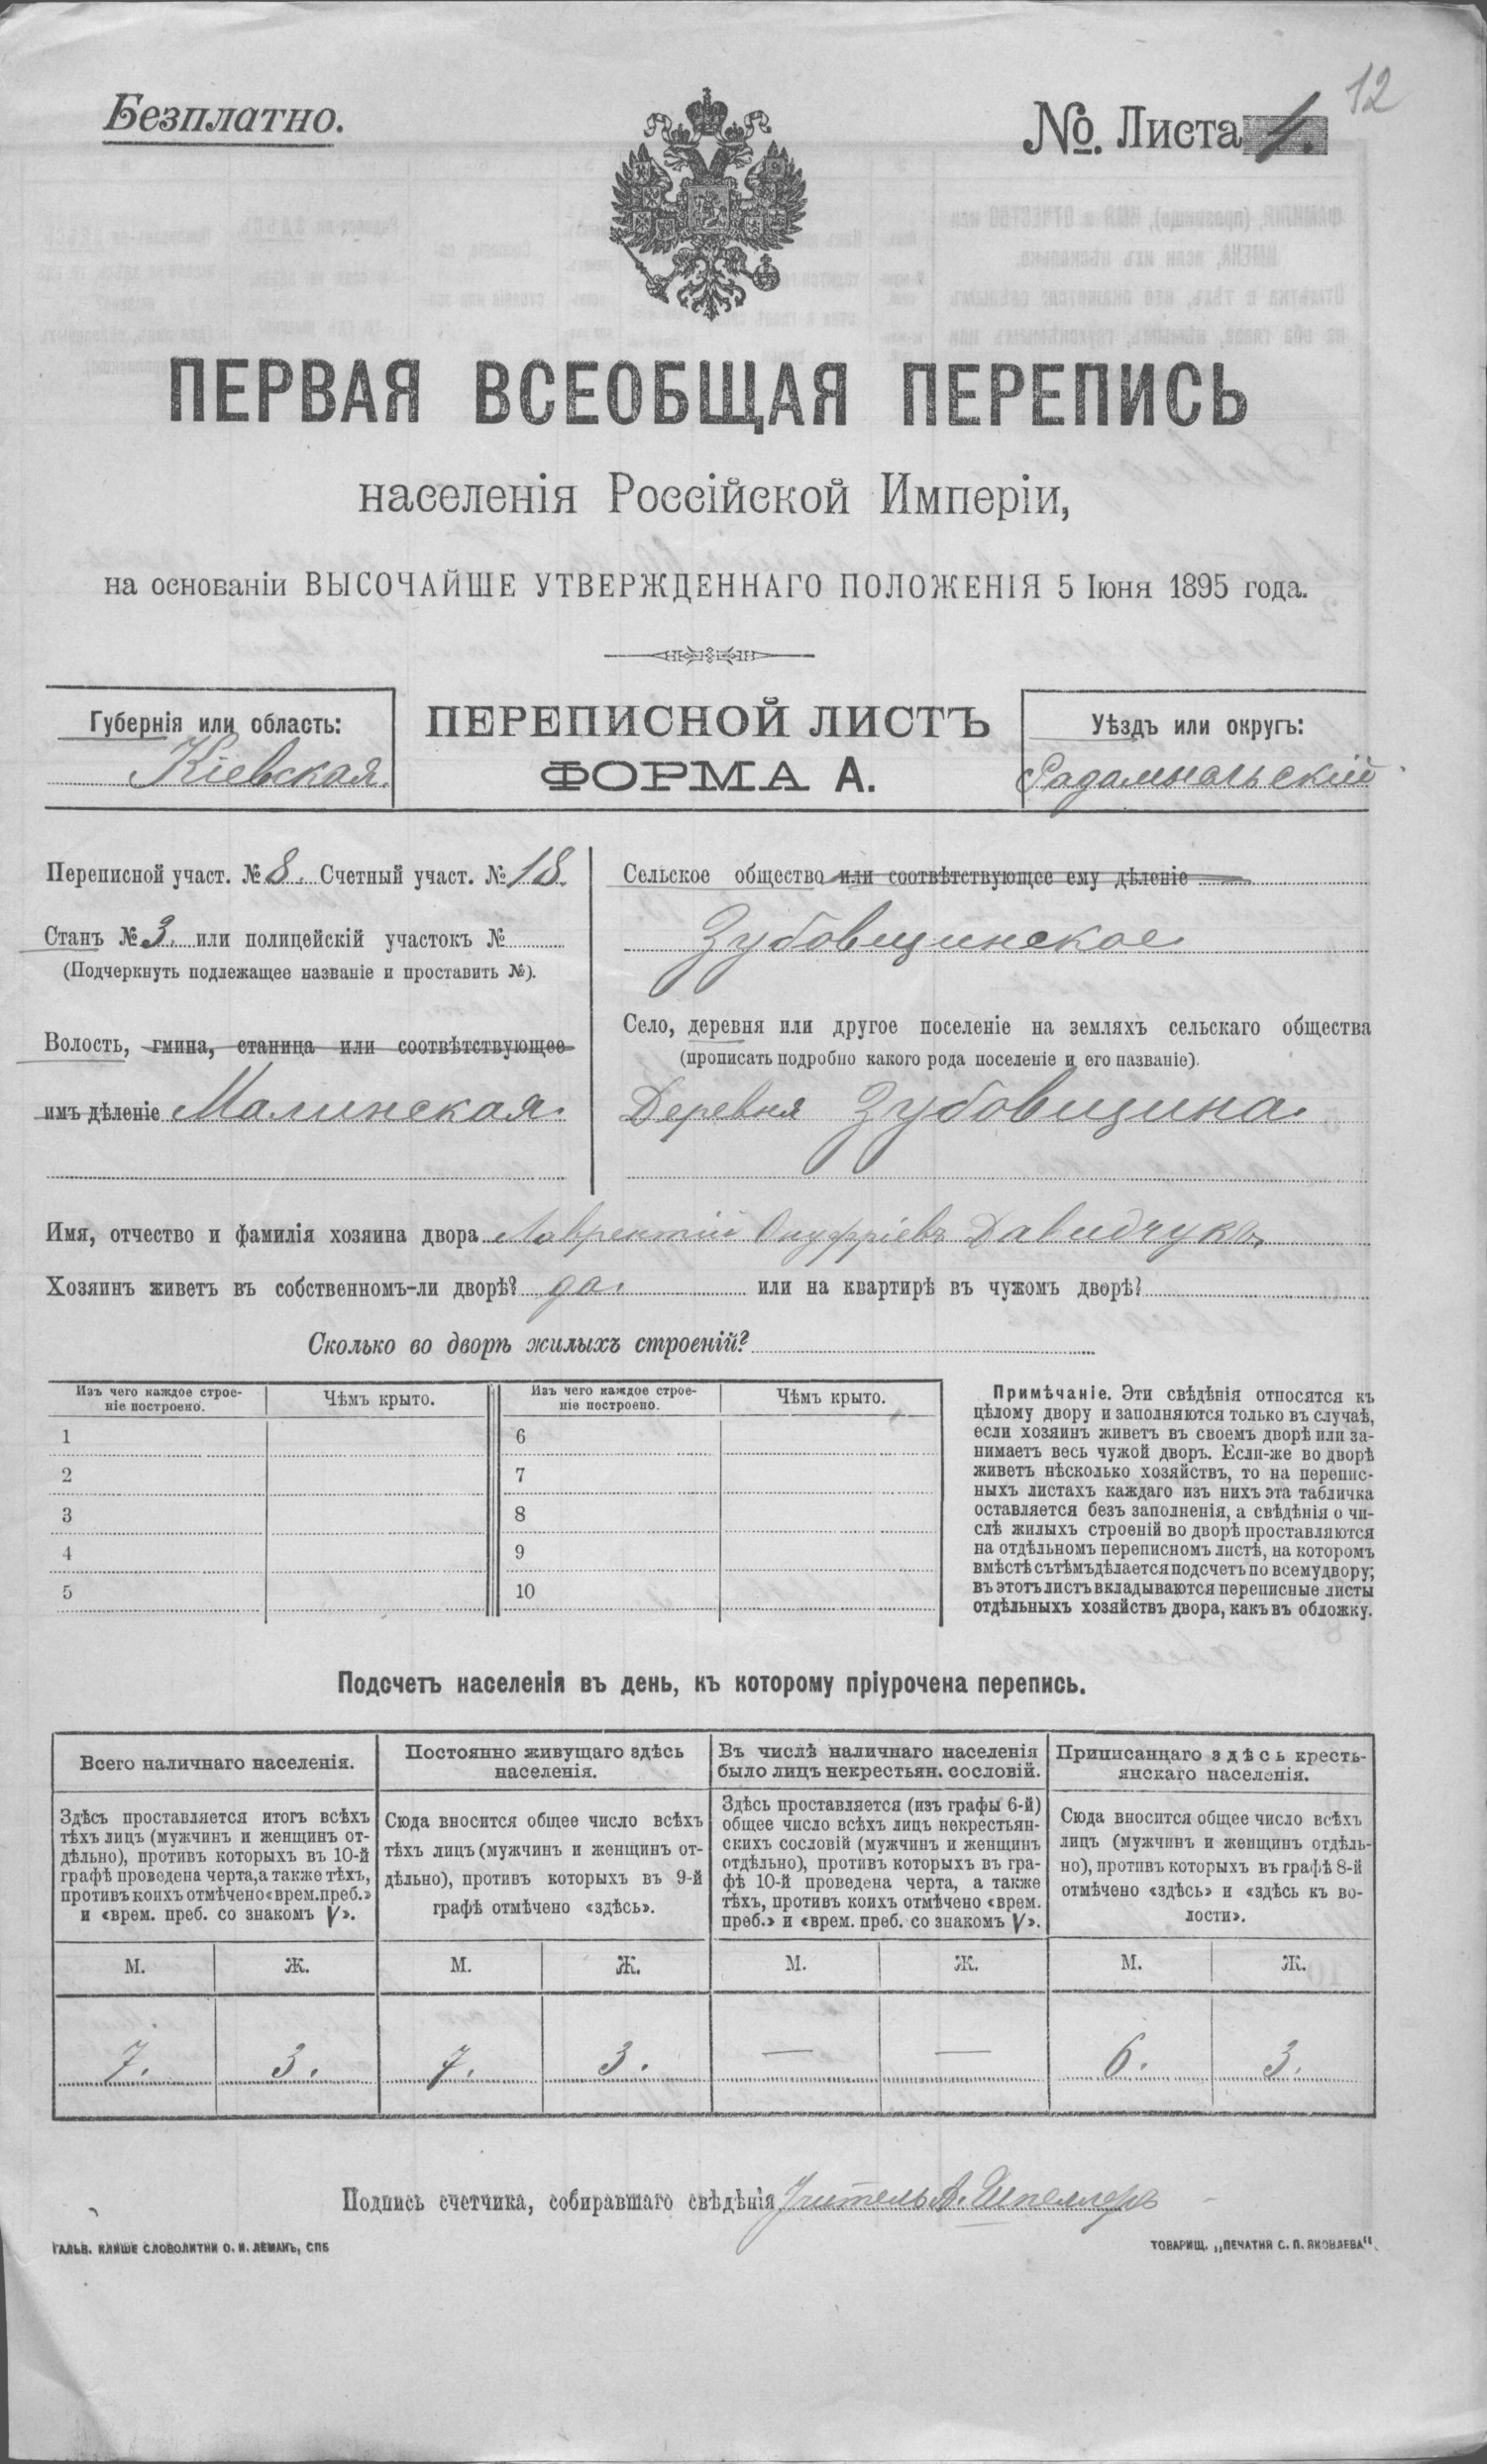 12
Безплатно.
№. Листа 4.
ПЕРВАЯ ВСЕОБЩАЯ ПЕРЕПИСЬ
населенія Россійской Имперіи,
на основаніи ВЫСОЧАЙШЕ УТВЕРЖДЕННАГО ПОЛОЖЕНІЯ 5 Іюня 1895 года.
Губернія или область:
Кіевская.
ПЕРЕПИСНОЙ ЛИСТЪ
ФОРМА А.
Уѣздъ или округъ:
Радомысльскій
Переписной участ. № 8. Счетный участ. № 18.
Станъ № 3. или полицейскій участокъ №
(Подчеркнуть подлежащее названіе и проставить №).
Волость, гмина, станица или соотвѣтствующее
имъ дѣленіе Малинская.
Сельское общество или соотвѣтствующее ему дѣленіе
Зубовщинское
Село, деревня или другое поселеніе на земляхъ сельскаго общества
(прописать подробно какого рода поселеніе и его названіе).
Деревня Зубовщина.
Имя, отчество и фамилія хозяина двора Лаврентій Онуфріевъ Давидчукъ,
Хозяинъ живетъ въ собственномъ-ли дворѣ? да. или на квартирѣ въ чужомъ дворѣ?
Сколько во дворѣ жилыхъ строеній?
Изъ чего каждое строе-
ніе построено.
Чѣмъ крыто.
1
2
3
4
5
Изъ чего каждое строе-
ніе построено.
Чѣмъ крыто.
6
7
8
9
10
Примѣчаніе. Эти свѣдѣнія относятся къ
цѣлому двору и заполняются только въ случаѣ,
если хозяинъ живетъ въ своемъ дворѣ или за-
нимаетъ весь чужой дворъ. Если-же во дворѣ
живетъ нѣсколько хозяйствъ, то на перепис-
ныхъ листахъ каждаго изъ нихъ эта табличка
оставляется безъ заполненія, а свѣдѣнія о чи-
слѣ жилыхъ строеній во дворѣ проставляются
на отдѣльномъ переписномъ листѣ, на которомъ
вмѣстѣ съ тѣмъ дѣлается подсчетъ по всему двору;
въ этотъ листъ вкладываются переписные листы
отдѣльныхъ хозяйствъ двора, какъ въ обложку.
Подсчетъ населенія въ день, къ которому пріурочена перепись.
Всего наличнаго населенія.
Здѣсь проставляется итогъ всѣхъ
тѣхъ лицъ (мужчинъ и женщинъ от-
дѣльно), противъ которыхъ въ 10-й
графѣ проведена черта, а также тѣхъ,
противъ коихъ отмѣчено «врем. преб.»
и «врем. преб. со знакомъ V».
М.
Ж.
7.
3.
Постоянно живущаго здѣсь
населенія.
Сюда вносится общее число всѣхъ
тѣхъ лицъ (мужчинъ и женщинъ от-
дѣльно), противъ которыхъ въ 9-й
графѣ отмѣчено «здѣсь».
М.
Ж.
7.
3.
Въ числѣ наличнаго населенія
было лицъ некрестьян. сословій.
Здѣсь проставляется (изъ графы 6-й)
общее число всѣхъ лицъ некрестьян-
скихъ сословій (мужчинъ и женщинъ
отдѣльно), противъ которыхъ въ гра-
фѣ 10-й проведена черта, а также
тѣхъ, противъ коихъ отмѣчено «врем.
преб.» и «врем. преб. со знакомъ V».
М.
Ж.
—
—
Приписаннаго здѣсь кресть-
янскаго населенія.
Сюда вносится общее число всѣхъ
лицъ (мужчинъ и женщинъ отдѣль-
но), противъ которыхъ въ графѣ 8-й
отмѣчено «здѣсь» и «здѣсь къ во-
лости».
М.
Ж.
6.
3.
Подпись счетчика, собиравшаго свѣдѣнія Учитель А. Шпеллеръ
ГАЛЬВ. КЛИШЕ СЛОВОЛИТНИ О. И. ЛЕМАНЪ, СПБ
ТОВАРИЩ. „ПЕЧАТНЯ С. П. ЯКОВЛЕВА".